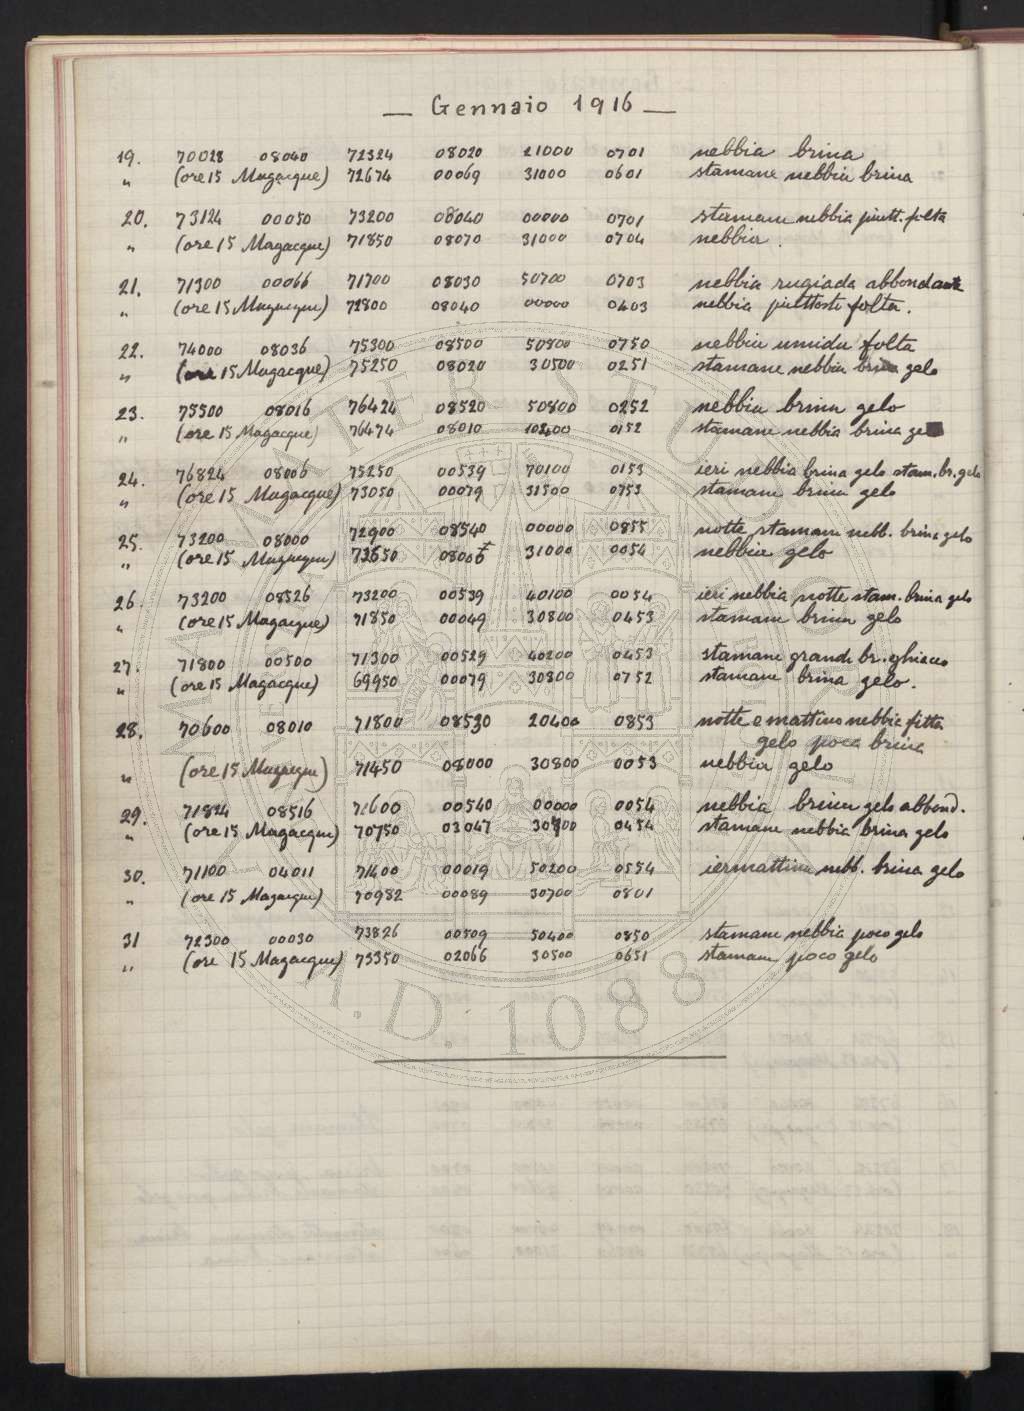 — Gennaio 1916 —
19. 70028 08040 72324 08020 21000 0701 nebbia brina
" (ore 15 Magacque) 72674 00069 31000 0601 stamane nebbia brina
20. 73124 00050 73200 08040 00000 0701 stamane nebbia piutt. folta
" (ore 15 Magacque) 71850 08070 31000 0704 nebbia.
21. 71300 00066 71700 08030 50700 0703 nebbia rugiada abbondante
" (ore 15 Magacque) 72800 08040 00000 0403 nebbia piuttosto folta.
22. 74000 08036 75300 08500 50800 0750 nebbia umida folta
" (ore 15 Magacque) 75250 08020 30500 0251 stamane nebbia brina gelo
23. 75500 08016 76424 08520 50800 0252 nebbia brina gelo
" (ore 15 Magacque) 76474 08010 10200 0152 stamane nebbia brina
24. 76824 08006 75250 00539 70100 0153 ieri nebbia brina gelo stam. br. gelo
" (ore 15 Magacque) 73050 00079 31500 0753 stamane brina gelo
25. 73200 08000 72900 08540 00000 0855 notte stamane nebb. brina gelo
" (ore 15 Magacque) 31000 0054 nebbia gelo
26. 73200 08526 73200 00539 40100 0054 ieri nebbia notte stam. brina gelo
" (ore 15 Magacque) 71850 00049 30800 0453 stamane brina gelo
27. 71800 00500 71300 00529 40200 0453 stamane grande br. ghiaccio
" (ore 15 Magacque) 69950 00079 30800 0752 stamane brina gelo.
28. 70600 08010 71800 08530 20400 0853 notte e mattino nebbia fitta
gelo poca brina
" (ore 15 Magacque) 71450 08000 30800 0053 nebbia gelo
29. 71824 08516 71600 00540 00000 0054 nebbia brina gelo abbond.
" (ore 15 Magacque) 70750 03047 0454 stamane nebbia brina gelo
30. 71100 04011 71400 00019 50200 0554 iermattina nebb. brina gelo
" (ore 15 Magacque) 70982 00089 30700 0801
31 72300 00030 73826 00509 50400 0850 stamane nebbia poco gelo
" (ore 15 Magacque) 73350 02066 30500 0651 stamane poco gelo
ALMA MATER STUDIORUM
A.D. 1088